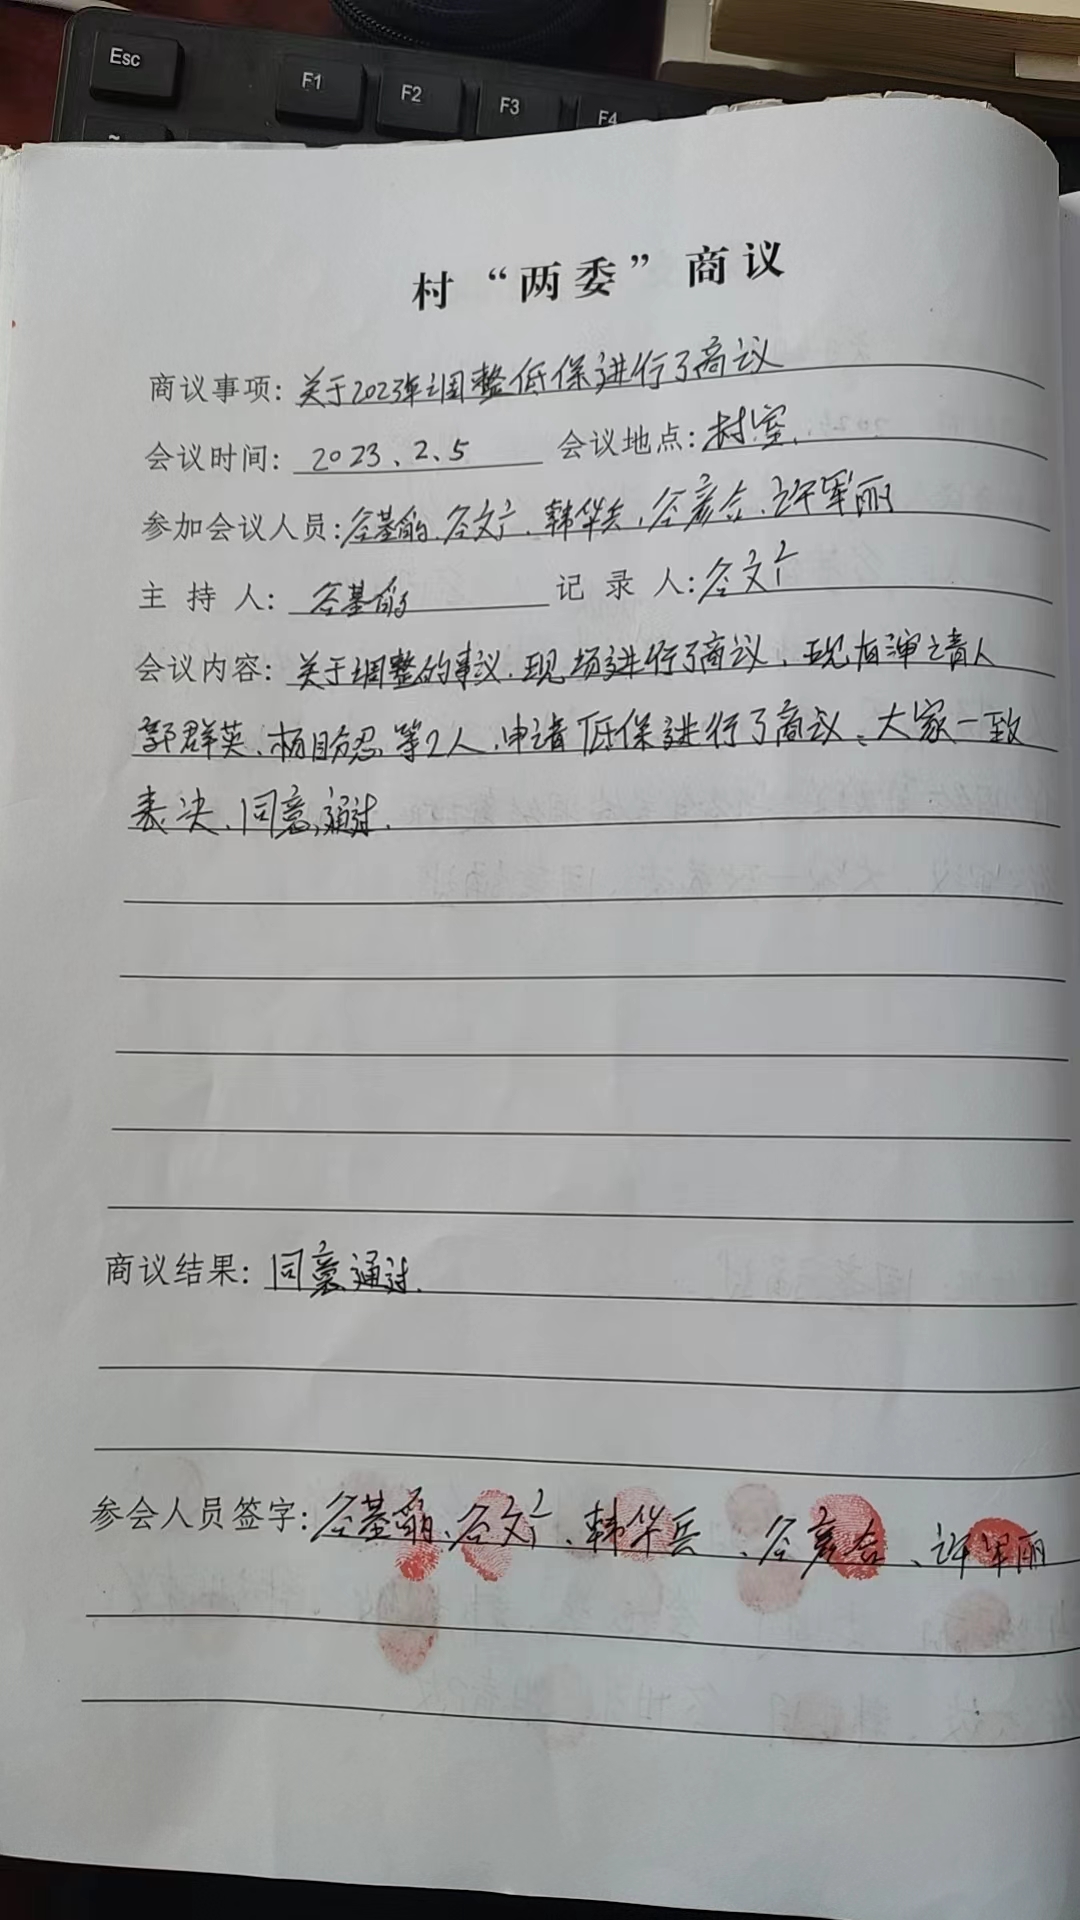 Esc
F1
F2
F3
F4
~
村“两委”商议
商议事项:关于2023年调整低保进行了商议
会议时间:2023、2、5 会议地点:村室、
参加会议人员:谷基、谷文广、韩华兵、谷彦合、许军丽
主持人:谷基 记录人:谷文广
会议内容:关于调整的事议、现场进行了商议、现有申请人
郭群英、杨等2人、申请低保进行了商议、大家一致
表决、同意、通过、
商议结果:同意通过、
参会人员签字:谷基、谷文广、韩华兵、谷彦合、许军丽